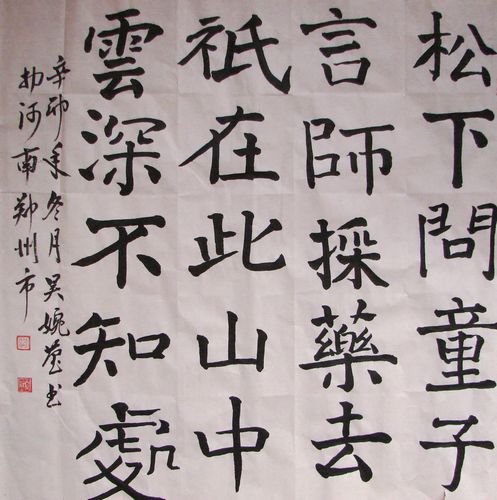 松下問童子
言師採藥去
祇在此山中
雲深不知處
辛卯年冬月吴婉莹书
於河南郑州市